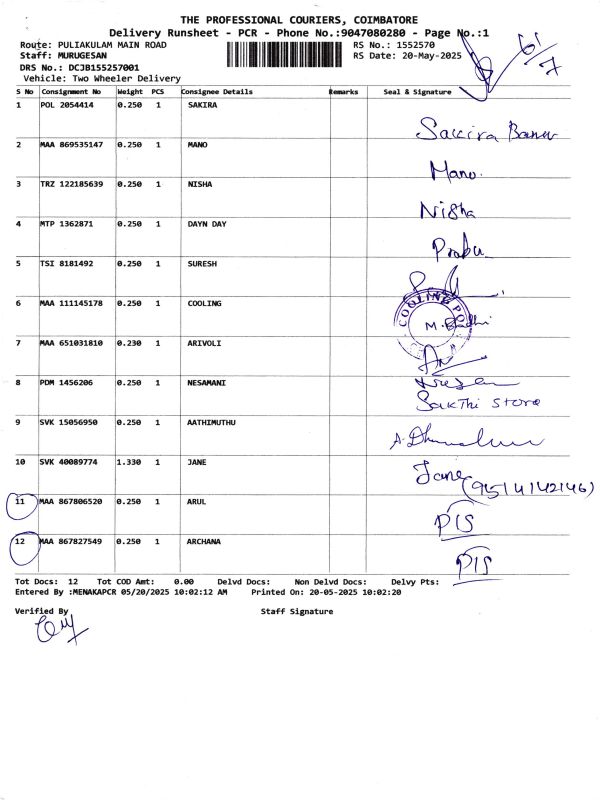 THE PROFESSIONAL COURIERS, COIMBATORE
Delivery Runsheet - PCR - Phone No.:9047080280 - Page No.:1
Route: PULIAKULAM MAIN ROAD RS No.: 1552570
Staff: MURUGESAN RS Date: 20-May-2025
DRS No.: DCJB155257001
Vehicle: Two Wheeler Delivery
S No Consignment No Weight PCS Consignee Details Remarks Seal & Signature
1 POL 2054414 0.250 1 SAKIRA Sakira Banu
2 MAA 869535147 0.250 1 MANO Mano.
3 TRZ 122185639 0.250 1 NISHA Nisha
4 MTP 1362871 0.250 1 DAYN DAY Prabu
5 TSI 8181492 0.250 1 SURESH
6 MAA 111145178 0.250 1 COOLING COOLING
7 MAA 651031810 0.230 1 ARIVOLI
8 PDM 1456206 0.250 1 NESAMANI Sakthi store
9 SVK 15056950 0.250 1 AATHIMUTHU
10 SVK 40089774 1.330 1 JANE Jane (9514142146)
11 MAA 867806520 0.250 1 ARUL PIS
12 MAA 867827549 0.250 1 ARCHANA PIS
Tot Docs: 12 Tot COD Amt: 0.00 Delvd Docs: Non Delvd Docs: Delvy Pts:
Entered By :MENAKAPCR 05/20/2025 10:02:12 AM Printed On: 20-05-2025 10:02:20
Verified By Staff Signature